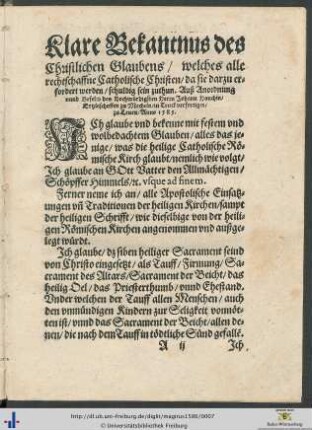 Klare Bekantnus des
Christlichen Glaubens / welches alle
rechtschaffne Catholische Christen / da sie darzu er-
fordert werden / schuldig sein zuthun. Auß Anordnung
vnnd Befelch des Hochwürdigsten Herrn Johann
Ertzbischoffen zu Mecheln / in Truck verfertiget /
zu Anno 1585.
ICh glaube vnd bekenne mit festem vnd
wolbedachtem Glauben / alles das je-
nige / was die heilige Catholische Rö-
mische Kirch glaubt / nemlich wie volgt /
Ich glaube an GOtt Vatter den Allmächtigen /
Schöpffer Himmels / ꝛc. vsque ad finem.
Ferner neme ich an / alle Apostolische Einsatz-
ungen vñ Traditionen der heiligen Kirchen / sampt
der heiligen Schrifft / wie dieselbige von der heili-
gen Römischen Kirchen angenommen vnd außge-
legt würdt.
Ich glaube / dz siben heiliger Sacrament seind
von Christo eingesetzt / als Tauff / Firmung / Sa-
crament des Altars / Sacrament der Beicht / das
heilig Oel / das Priesterthumb / vnnd Ehestand.
Vnder welchen der Tauff allen Menschen / auch
den vnmündigen Kindern zur Seligkeit vonnö-
ten ist / vnnd das Sacrament der Beicht / allen de-
nen / die nach dem Tauff in tödtliche Sünd gefallē.
A ij
Ich
http://dl.ub.uni-freiburg.de/diglit/magnus1586/0007
© Universitätsbibliothek Freiburg
Baden-Württemberg